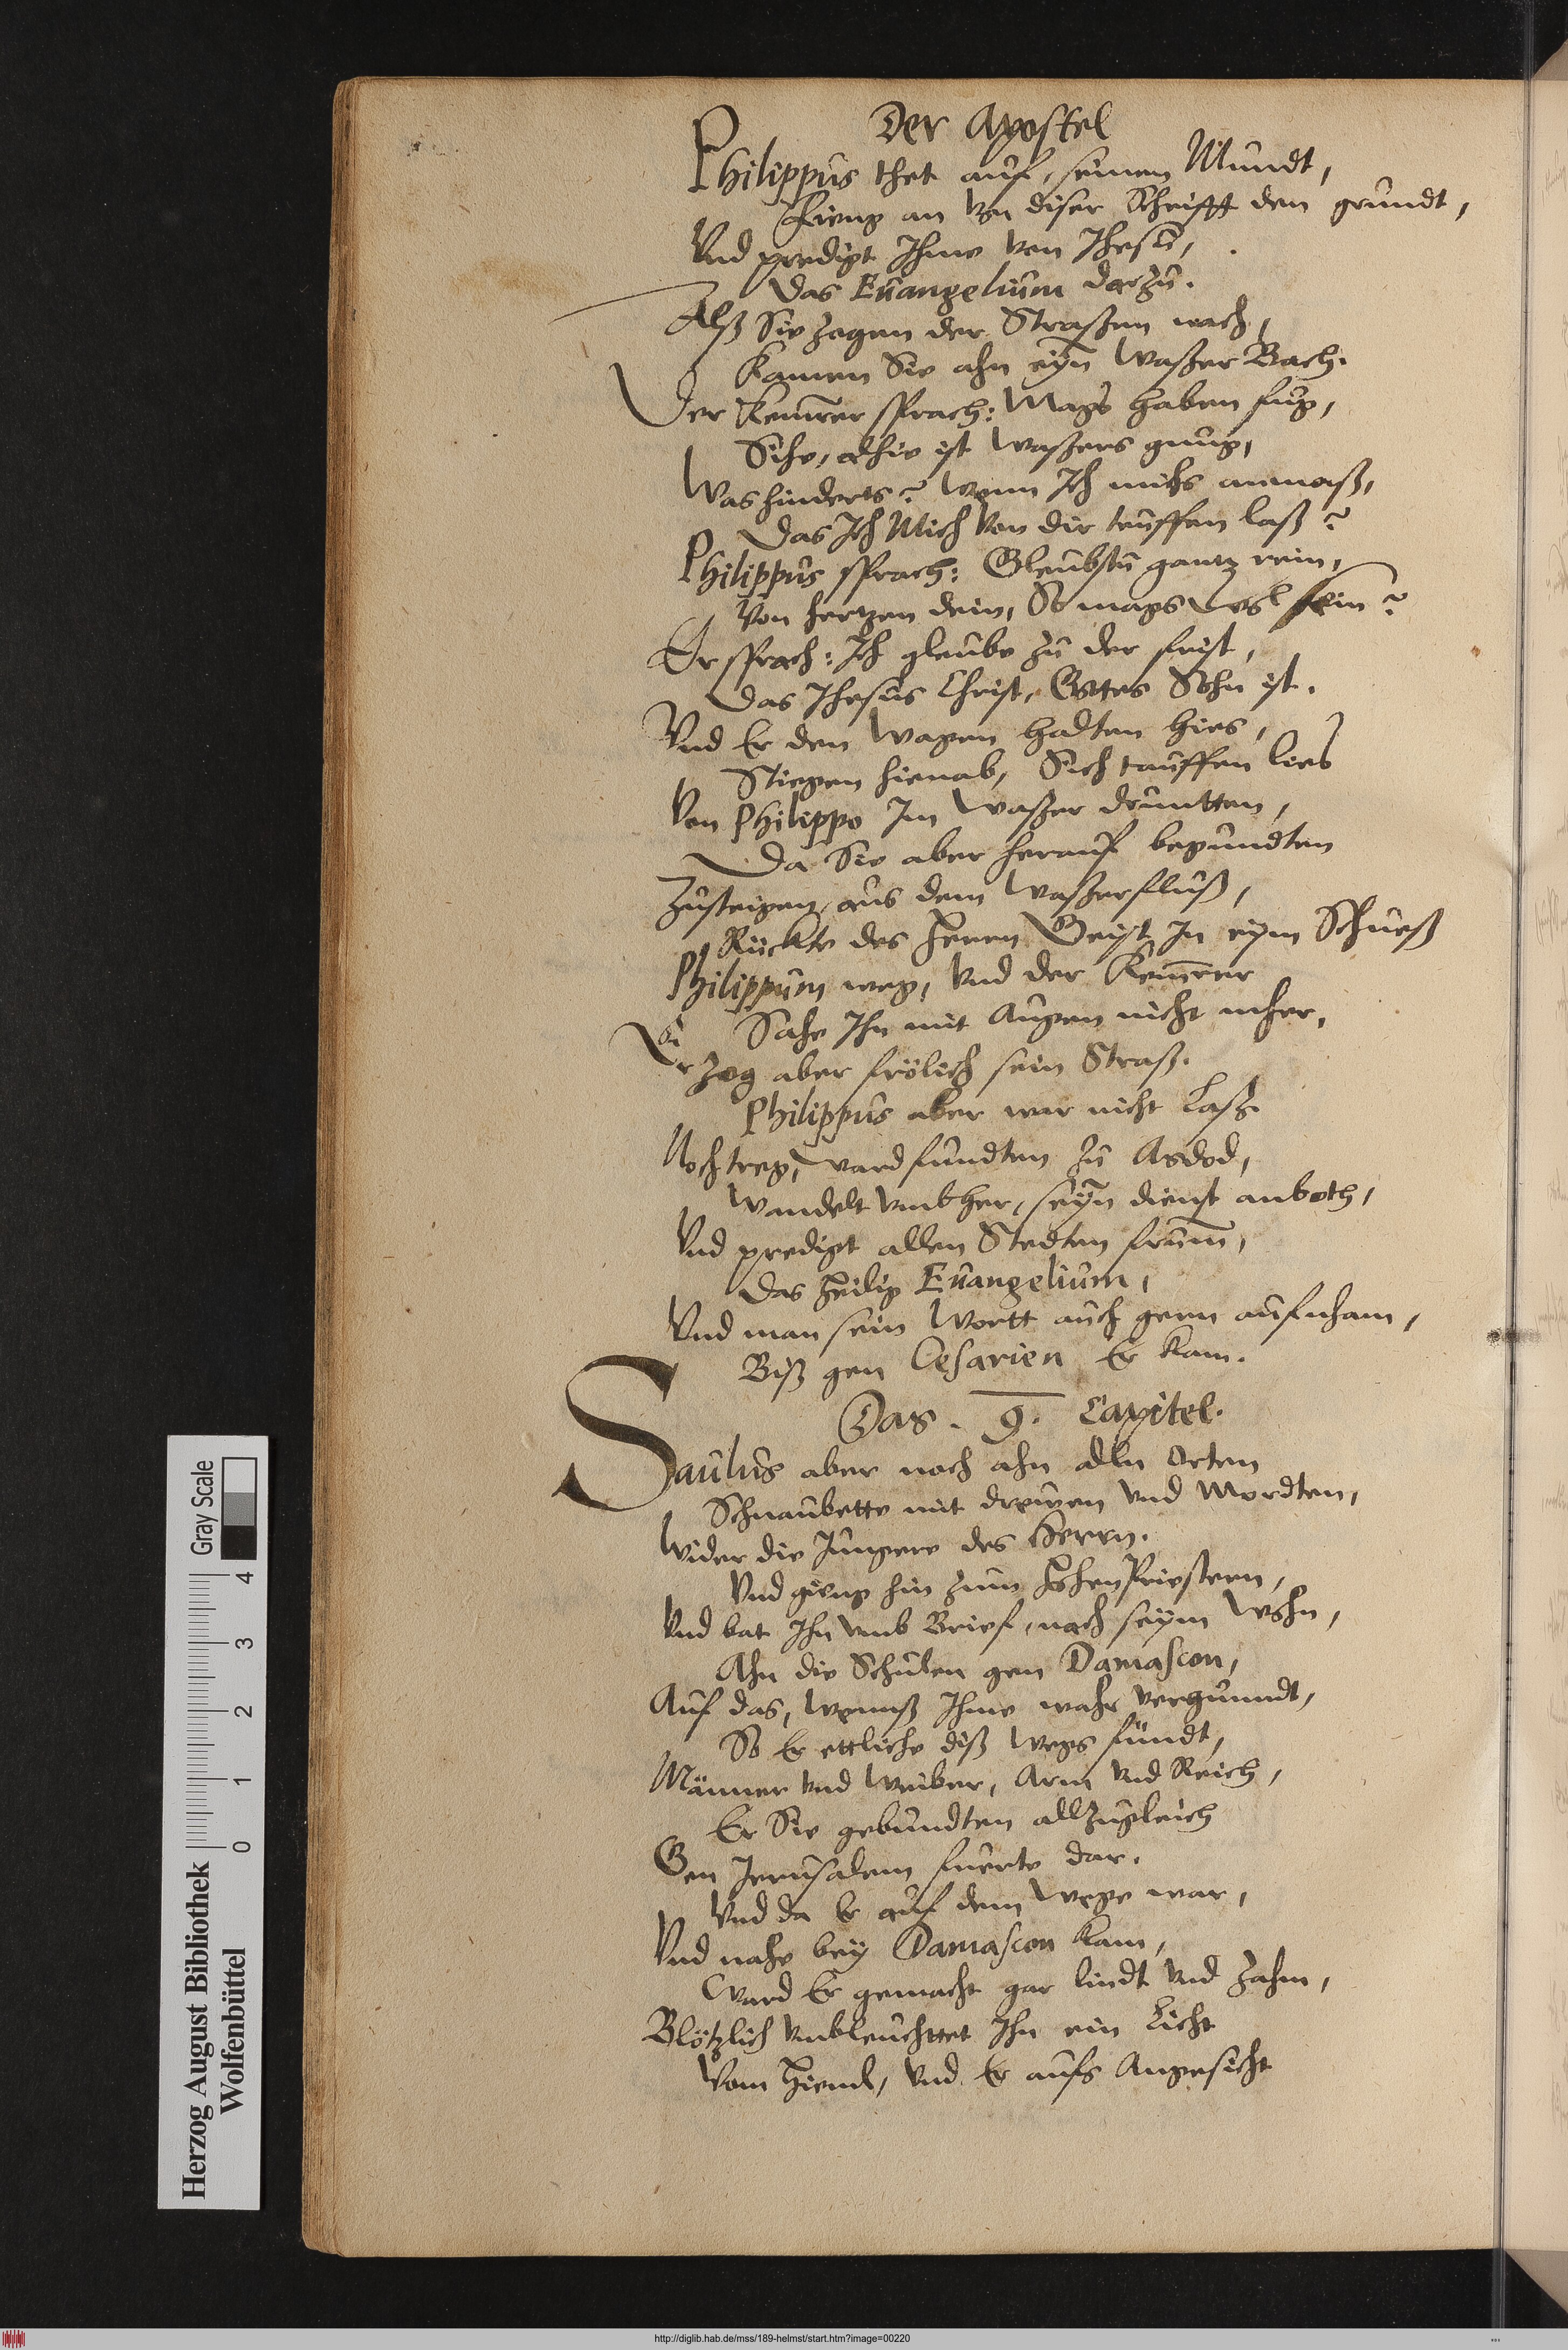 Der Apostel
Philippus thet auf, seinen Mundt,
Fieng an von diser Schrifft den grundt,
Vnd predigt Ihme von Ihesu,
Das Euangelium darzu.
Alß Sie zogen der Straßen nach,
Kamen Sie ahn eÿn Waßer Bach.
Der Kem̄rer sprach: Mags haben fug,
Sihe, alhie ist waßers gnug,
Was hinderts? Wenn Ich michs anmaß,
Das Ich Mich Von dir teuffen laß?
Philippus sprach: Gleubstu gantz rein,
Von hertzen dein, So mags wol sein?
Er sprach: Ich gleube zu der frist,
Das Ihesus Christ, Gottes Sohn ist.
Vnd Er den Wagen hadten hies,
Stiegen hienab, Sich tauffen lies
Von Philippo Im Waßer druntten,
Da Sie aber herauf begundten
Zusteigen, aus dem Waßerfluß,
Rückte des Herrn Geist In eÿm Schueß
Philippum weg, Vnd der Kem̄rer
Sahe Ihn mit Augen nicht meher,
Er Zog aber frölich sein Straß.
Philippus aber war nicht Laß.
Noch treg, ward fundten zu Asdod,
Wandelt vmbher, seÿn dienst anboth,
Vnd predigt allen Stedten frum̄,
Das heilig Euangelium,
Vnd man sein Wortt auch gern aufnham,
Biß gen Cesarien Er kam.
Das . 9. Capitel.
Saulus aber noch ahn alln Orten
Schnaubette mit drewen vnd Mordten,
Wider die Jungere des Herrn.
Vnd gieng hin zum HohenPriestern,
Vnd bat Ihn vmb Brief, nach seÿm Wohn,
Ahn die Schulen gen Damascon,
Auf das, wennß Ihme wahr vergunndt,
So Er ettliche diß Wegs fündt,
Männer vnd Weiber, Arm vnd Reich,
Er Sie gebundten allzugleich
Gen Jerusalem fuerte dar.
Vnd da Er auf dem Wege war,
Vnd nahe beÿ Damascon kam,
Ward Er gemacht gar lindt vnd Zahm,
Blötzlich vmbleuchttet Ihn ein Licht
Vom Himel, Vnd Er aufs Angesicht
Herzog August Bibliothek
Wolfenbüttel
0 1 2 3 4
Gray Scale
http://diglib.hab.de/mss/189-helmst/start.htm?image=00220